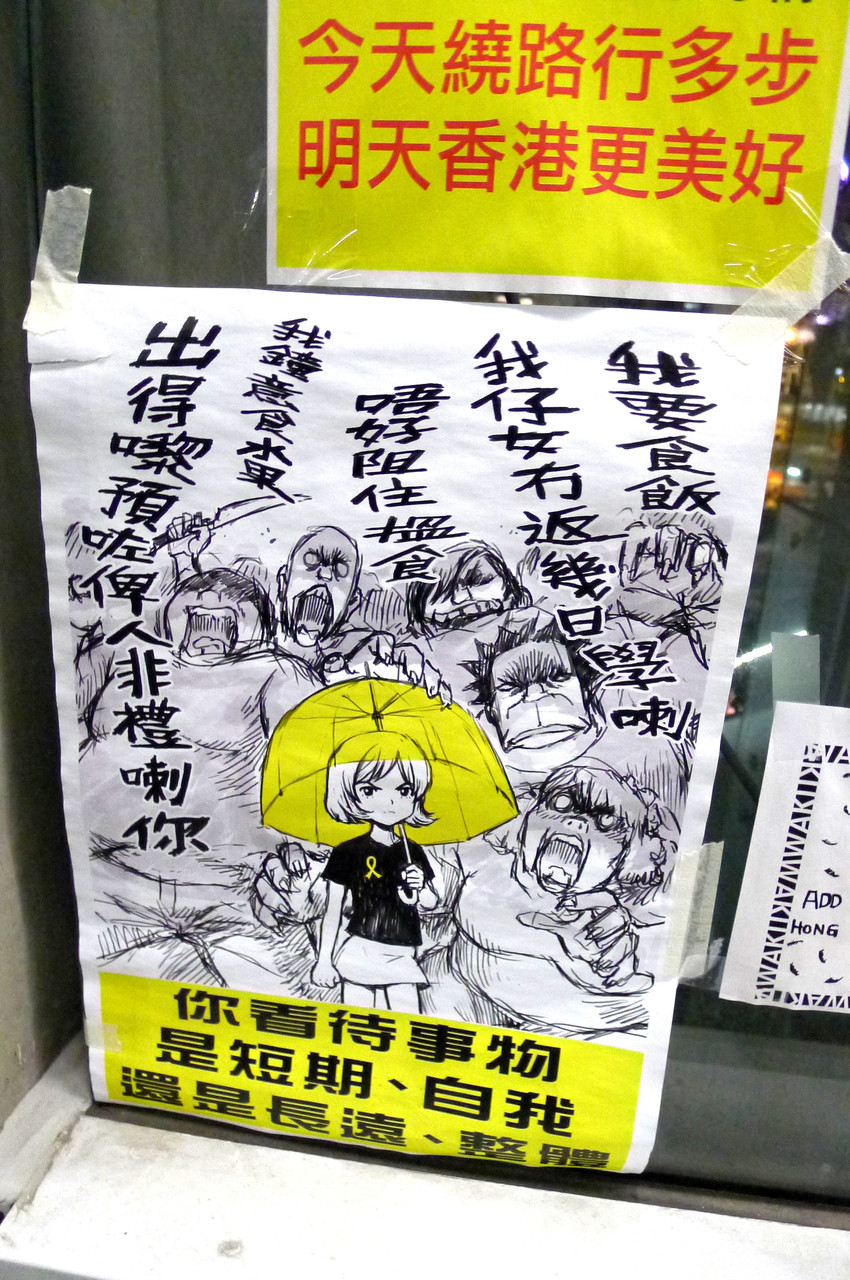 今天繞路行多步
明天香港更美好
我要食飯
我仔女冇返幾日學喇
唔好阻住搵食
我鐘意食水果
出得嚟預咗俾人非禮喇你
你看待事物
是短期、自我
還是長遠、整體
ADD
HONG